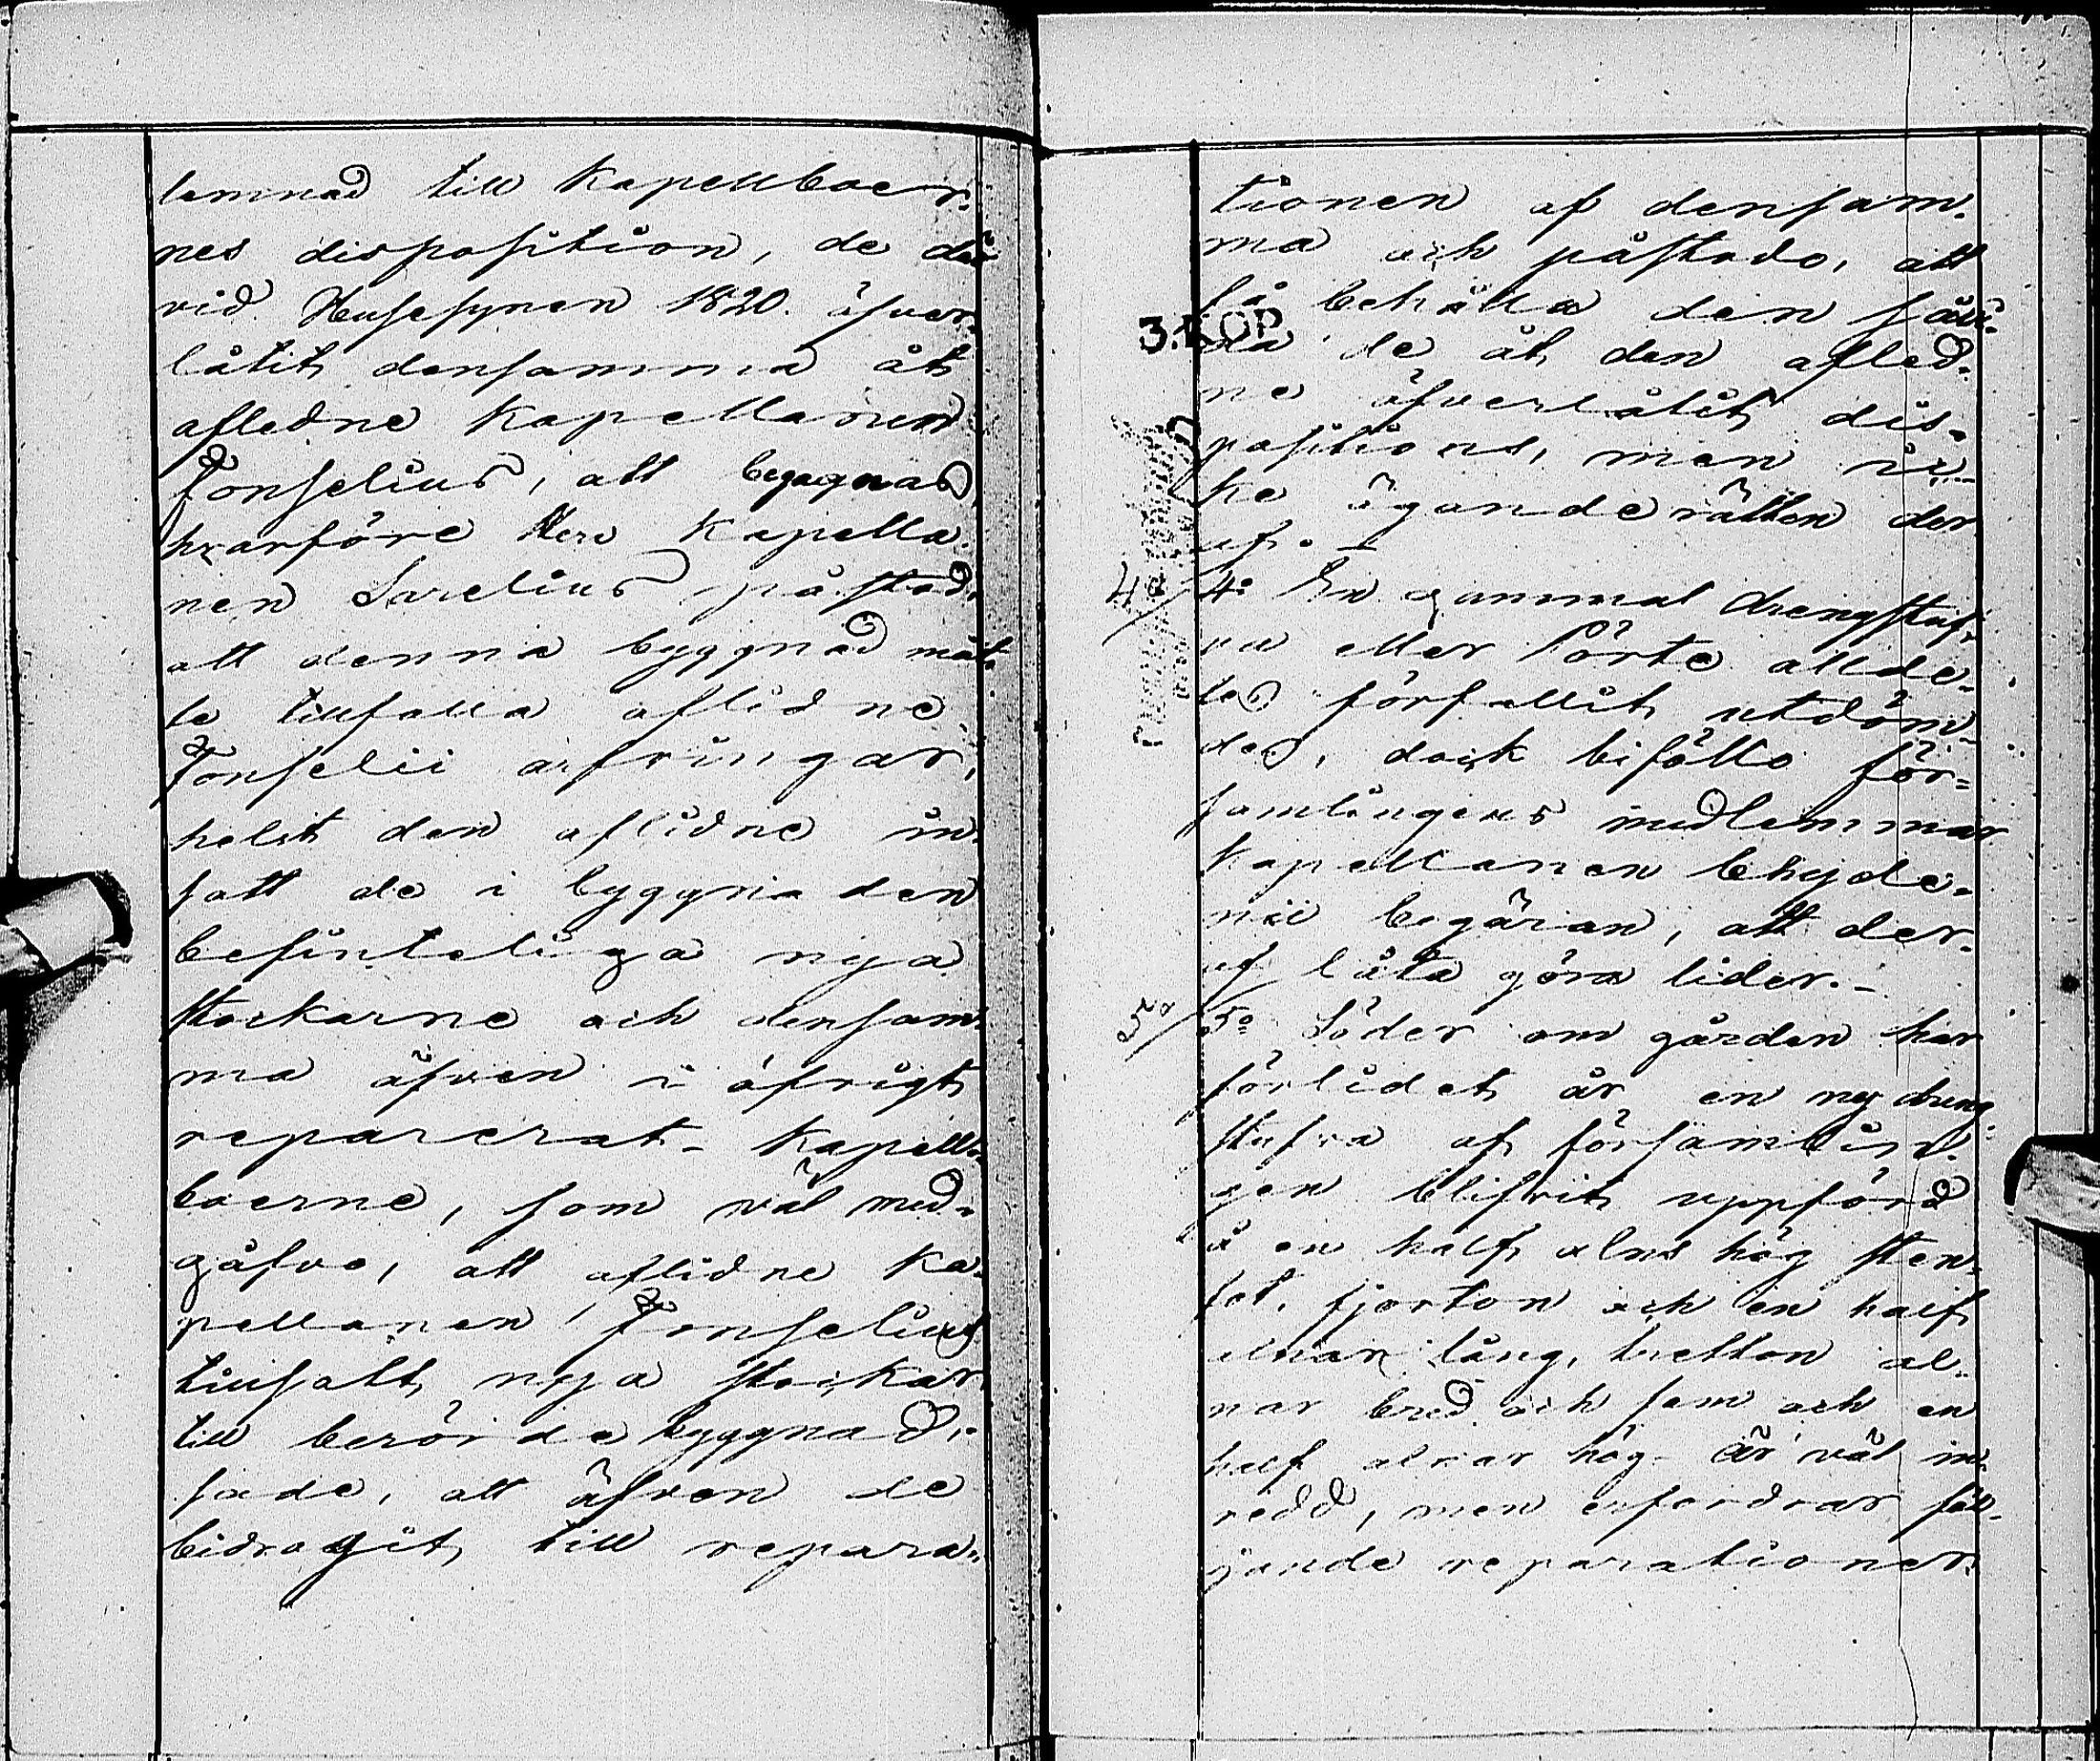 lemnad till Kapellboer-
nes disposition, de de
vid Husesynen 1820. öfver-
låtit densamma åt
afledne Kapellanen
Fonselius, att begagnas,
hvarföre Herr Kapella-
nen Sarelius påstod,
att denna byggnad mått-
te tillfalla aflidne
Fonselii arfvingar,
helst den aflidne in-
satt de i byggnaden
befinteliga nya
stockarne och densam-
ma äfven i öfrigt
reparerat. Kapell-
boerne, som väl med-
gåfvo, att aflidne Ka-
pellanen Fonselius
tillsatt nya stockar
till berörde byggnad,
sade, att äfven de
bidragit till repara-
tionen af densam-
ma och påstodo, att
få behålla den,
3.KOP.
de åt den afled-
ne öfverlåtit dis-
positions, men ic-
ke äganderätten der
af. -
4/ 4: En gammal drengstuf-
va eller Pörte allde-
les förfallit, utdöm-
des, dock biföllo för-
samlingens medlemmar
Kapellanen
begäran, att der-
af låta göra lider. -
5/ 5o Söder om gården har
förlidet år en ny dreng-
stufva af församlin-
gen blifvit uppförd
å en half alns hög sten-
fot, fjorton och en half
alnar lång, tretton al-
nar bred och fem och en
half alnar hög. Är väl in-
redd, men erfordrar föl-
jande reparationer.